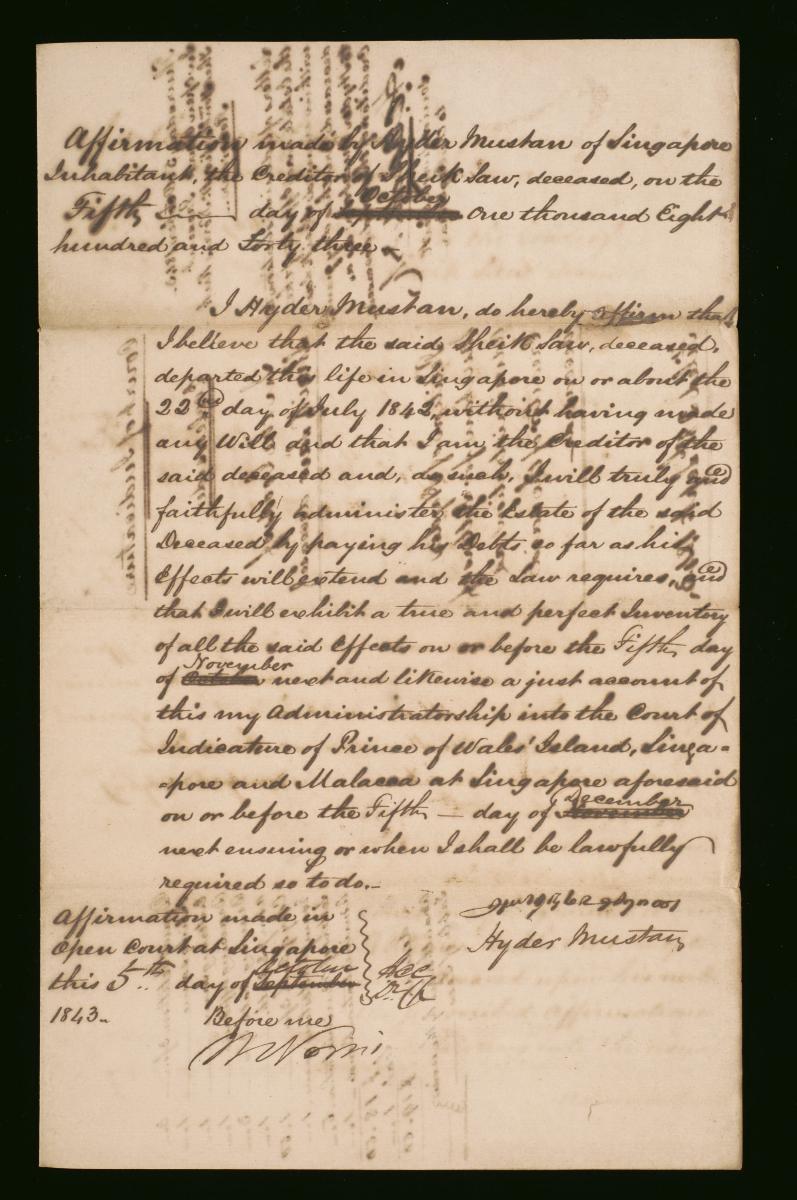 Affirmation made by Hyder Mustan of Singapore
Inhabitant, the Creditor of Sheik Saw, deceased, on the
October
Fifth day of September One thousand Eight
hundred and Forty three
I Hyder Mustan, do hereby affirm that
I believe that the said Sheik Saw, deceased,
departed this life in Singapore on or about the
22nd day of July 1842, without having made
any Will and that I am the Creditor of the
said deceased and, as such, I will truly and
faithfully administer the Estate of the said
Deceased by paying his Debts so far as his
Effects will extend and the Law requires, and
that I will exhibit a true and perfect Inventory
of all the said Effects on or before the Fifth day
November
of October next and likewise a just account of
this my Administratorship into the Court of
Judicature of Prince of Wales' Island, Singa-
-pore and Malacca at Singapore aforesaid
December
on or before the Fifth — day of November
next ensuing or when I shall be lawfully
required so to do.
Hyder Mustan
Affirmation made in
Open Court at Singapore
October
this 5th day of September
1843. Before me
W Norris